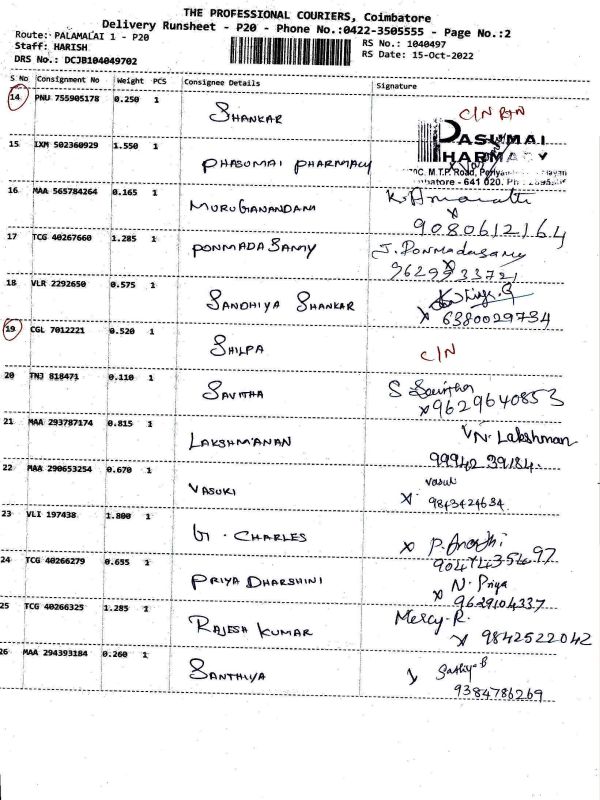 THE PROFESSIONAL COURIERS, Coimbatore
Delivery Runsheet - P20 - Phone No.:0422-3505555 - Page No.:2
Route: PALAMALAI 1 - P20
Staff: HARISH
RS No.: 1040497
DRS No.: DCJB104049702
RS Date: 15-Oct-2022
S No Consignment No Weight PCS Consignee Details Signature
14 PNU 755905178 0.250 1 SHANKAR C/N
15 IXM 502360929 1.550 1 PHASUMAI PHARMACY
PASUMAI
PHARMACY
M.T.P. Road,
641 020.
16 MAA 565784264 0.165 1 MURUGANANDAM
9080612164
17 TCG 40267660 1.285 1 PONMADASAMY J. Ponmadasamy
9629933721
18 VLR 2292650 0.575 1 SANDHIYA SHANKAR
x 6380029734
19 CGL 7012221 0.520 1 SHILPA C/N
20 TNJ 818471 0.110 1 SAVITHA S Savitha
x 9629640853
21 MAA 293787174 0.815 1 LAKSHMANAN VN. Lakshman
99942 39184.
22 MAA 290653254 0.670 1 VASUKI Vasuki
x 9843424634
23 VLI 197438 1.800 1 G. CHARLES x P.
24 TCG 40266279 0.655 1 PRIYA DHARSHINI N. Priya
x 9629104337
25 TCG 40266325 1.285 1 RAJESH KUMAR Mercy.R.
x 9842522042
26 MAA 294393184 0.260 1 SANTHIYA
9384786269